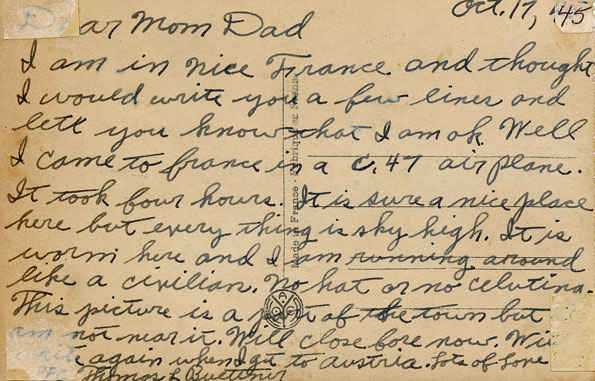 Oct. 17, 45
Dear Mom Dad
I am in nice France and thought
I would write you a few lines and
lett you know that I am ok. Well
I came to france in a C.47 airplane.
It took four hours. It is sure a nice place
here but every thing is sky high. It is
worm here and I am running around
like a civilian. No hat or no celuting.
This picture is a part of the town but
am not near it. Will close fore now. Wi
again when I get to austria. Lots of Love
Thomas L Buettner
Made in France